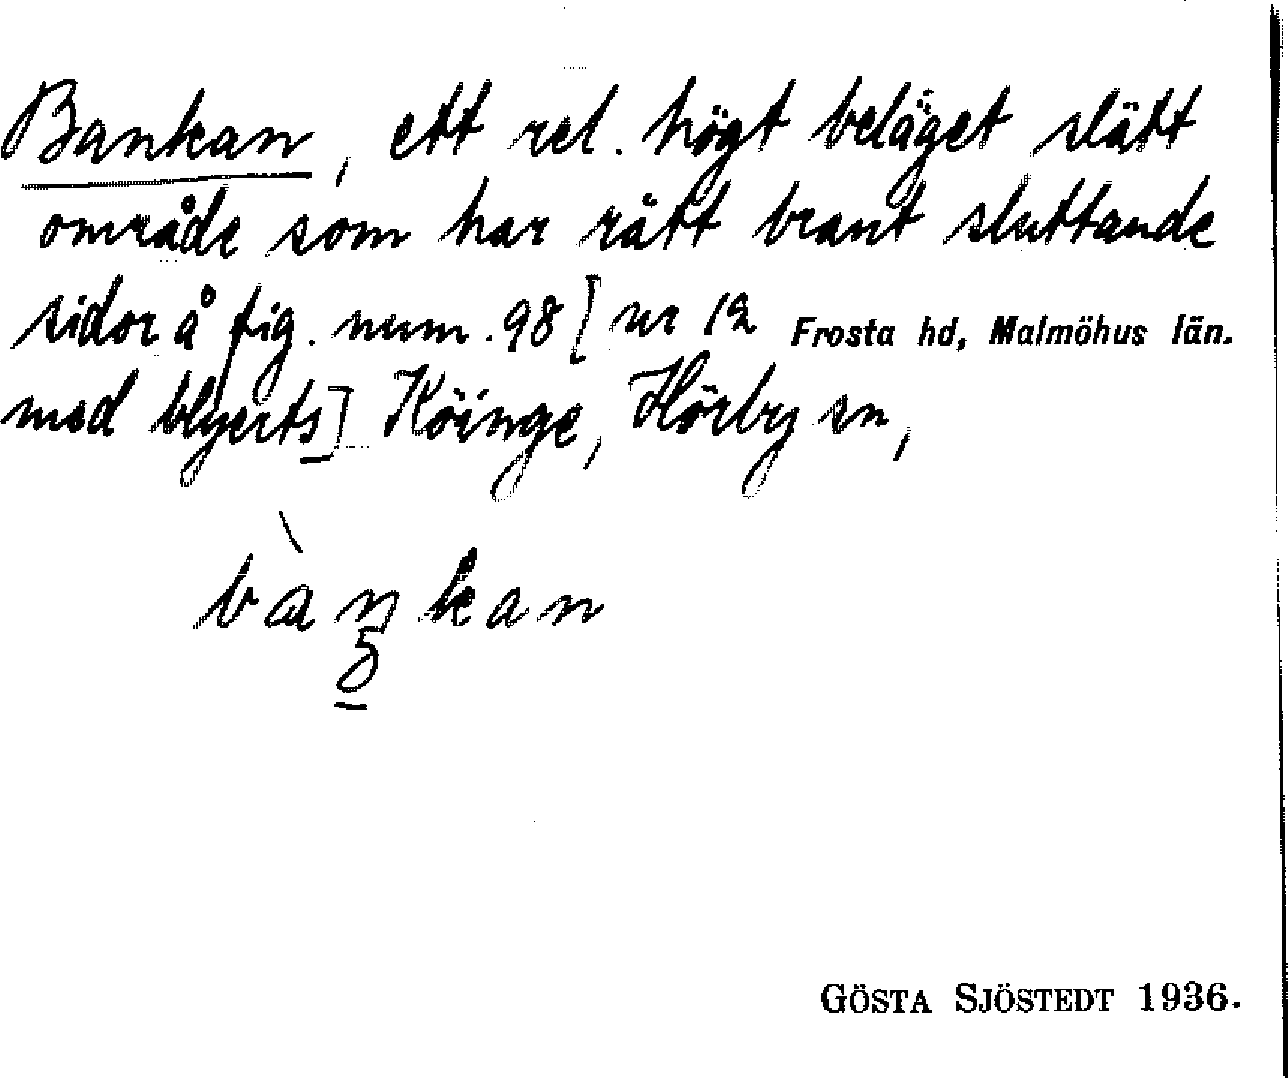 Bankan, ett rel. högt beläget slätt
område som har rätt brant sluttande
sidor å fig. num. 98 [nr 12 Frosta hd, Malmöhus län.
med blyerts] Köinge, Hörby sn,
bàŋkan
5
GÖSTA SJÖSTEDT 1936.